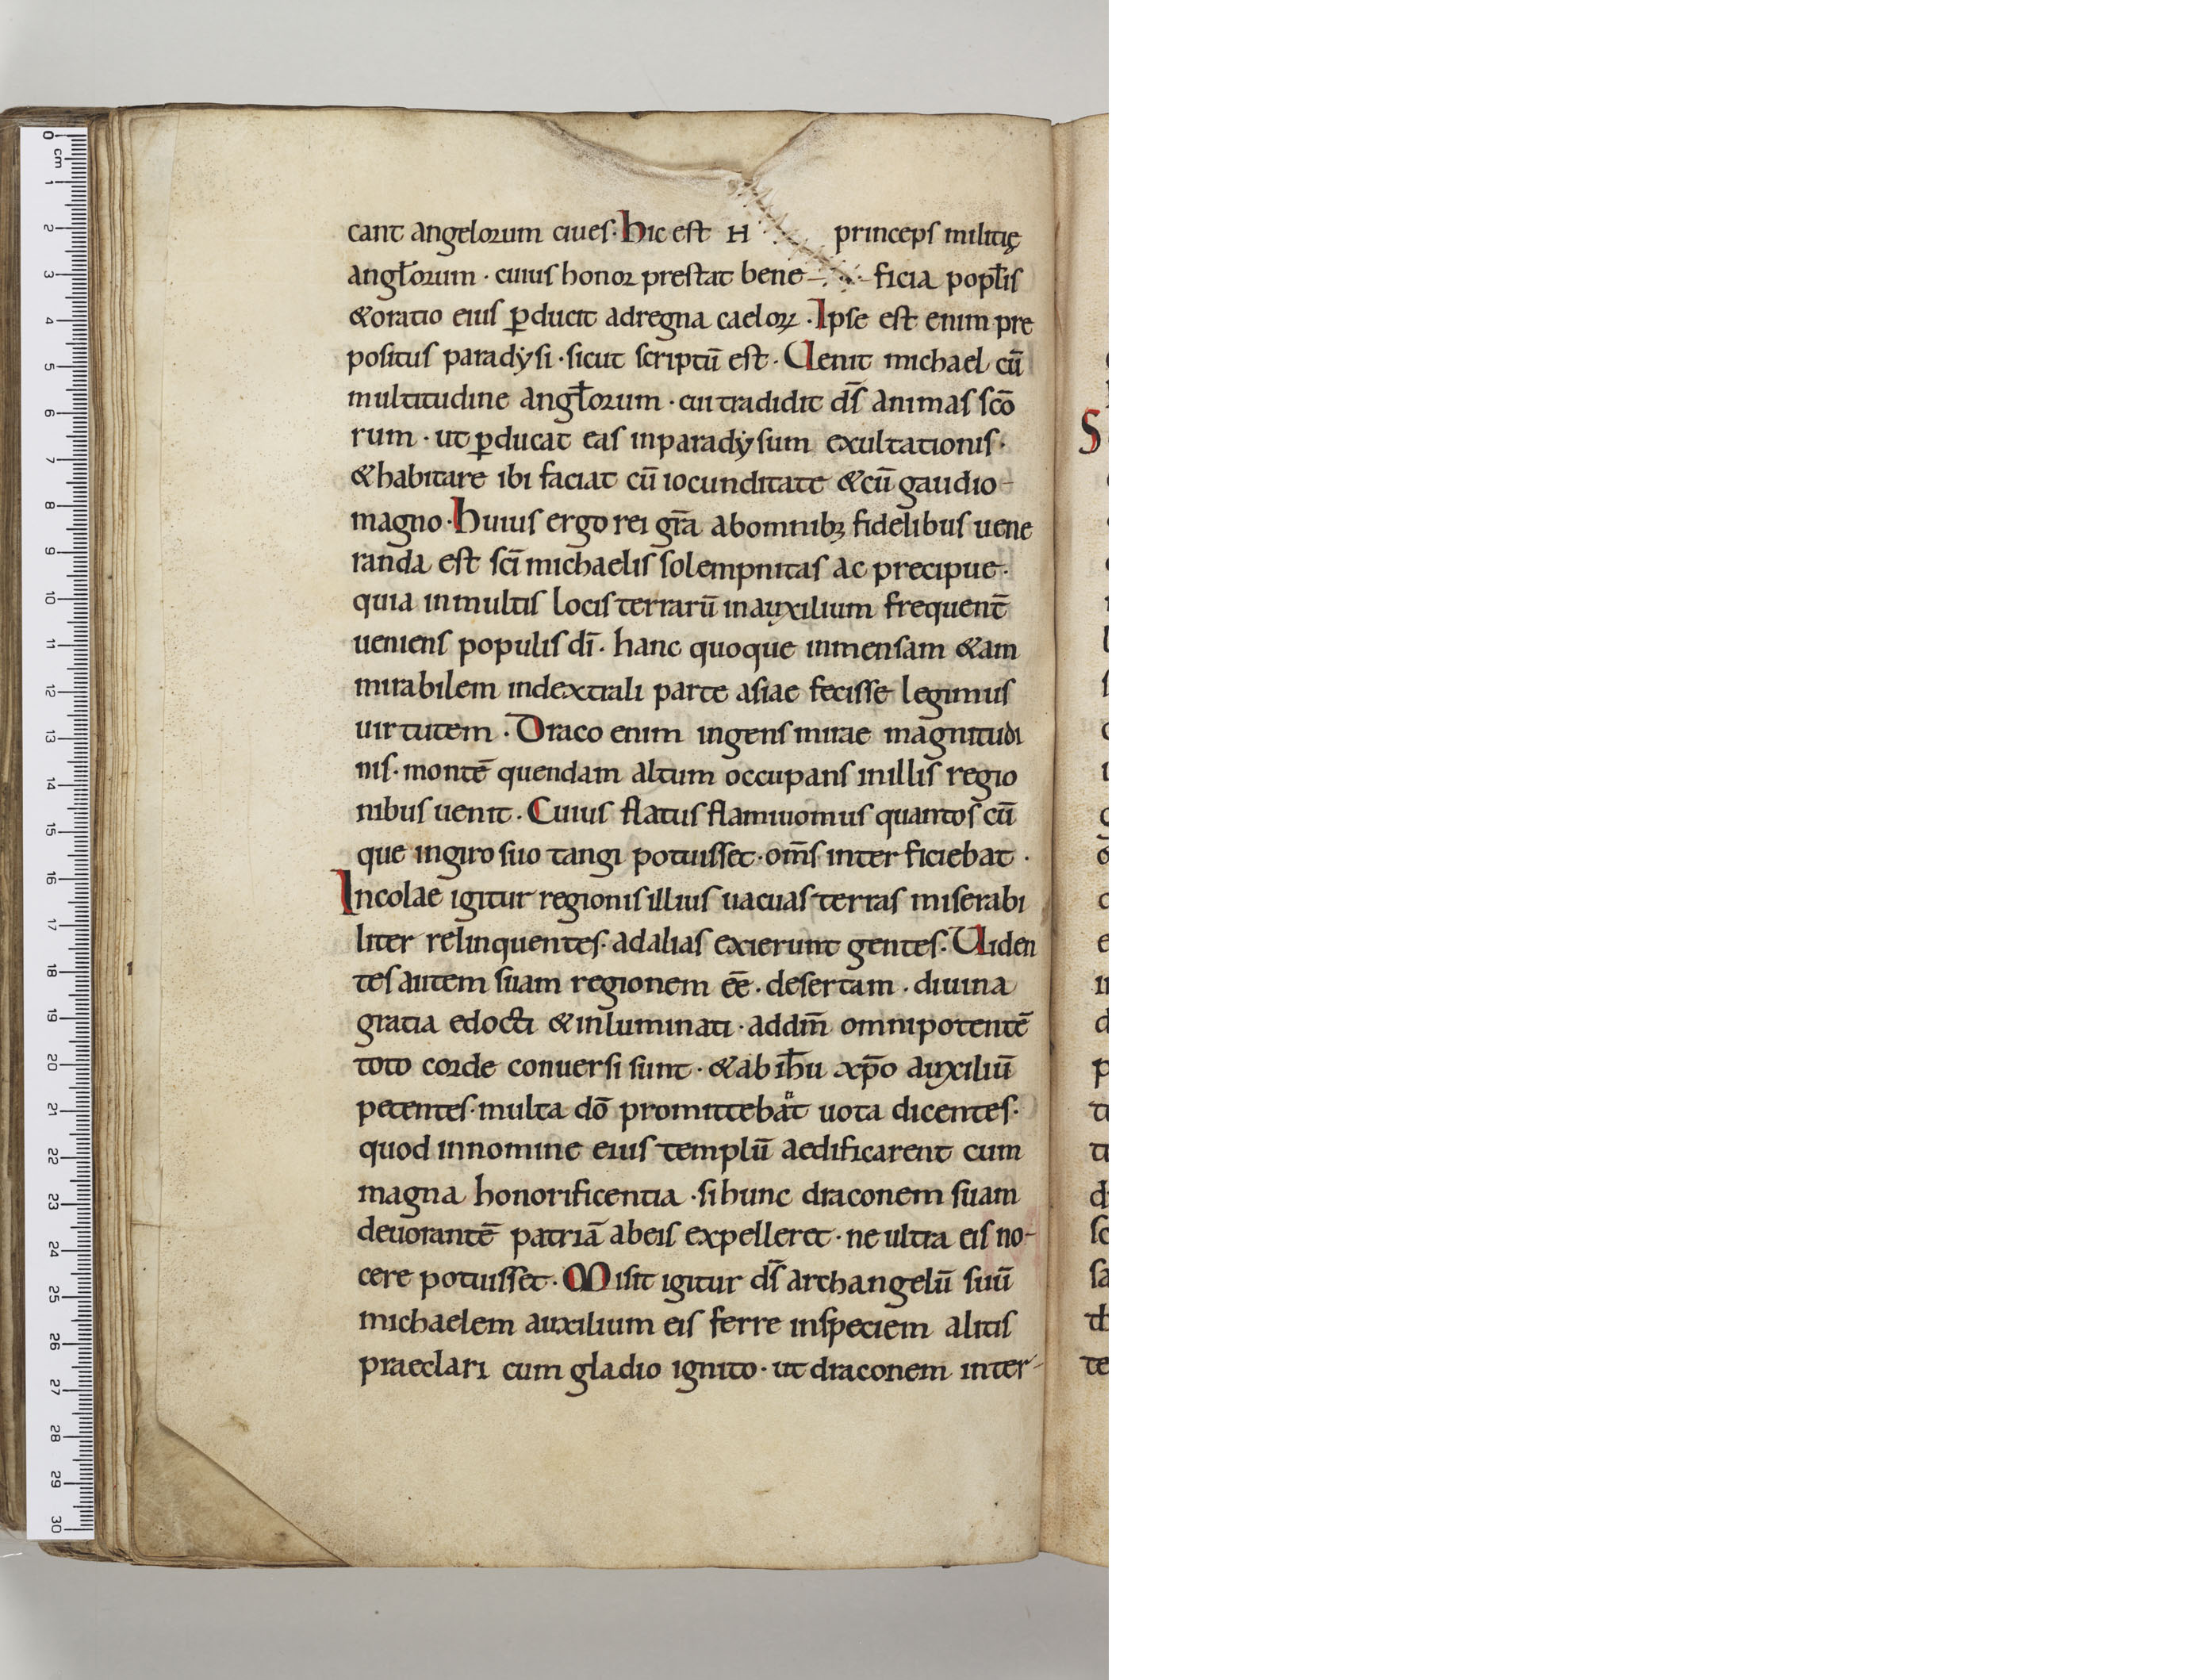 cant angelorum ciues. hic est H princeps militię
angl̄orum · cuius honor prestat bene- ficia popl̄is
&oratio eius ꝑducit adregna caeloꝝ. Ipse est enim pre
positus paradẏsi · sicut scriptū est. Uenit michael cū
multitudine angl̄orum · cui tradidit ds̄ animas scō
rum · ut ꝑducat eas inparadẏsum exultationis.
&habitare ibi faciat cū iocunditate &cū gaudio-
magno. huius ergo rei grā abomnibꝫ fidelibus uene
randa est scī michaelis solempnitas ac precipue.
quia inmultis locis terrarū inauxilium frequent̄
ueniens populis dī. hanc quoque inmensam &am
mirabilem indextiali parte asiae fecisse legimus
uirtutem. Draco enim ingens mirae magnitudi
nis. montē quendam altum occupans inillis regio
nibus uenit. Cuius flatus flamiuomus quantos cū
que ingiro suo tangi potuisset. oms̄ inter ficiebat.
Incolae igitur regionis illius uacuas terras miserabi
liter relinquentes. adalias exierunt gentes. Uiden
tes autem suam regionem eē. desertam. diuina
gratia edocti &inluminati. addm̄ omnipotentē
toto corde conuersi sunt. &ab ih̄u xp̄o auxiliū
petentes. multa dō promittebant uota dicentes.
quod innomine eius templū aedificarent cum
magna honorificentia. si hunc draconem suam
deuorantē patriā abeis expelleret. ne ultra eis no-
cere potuisset. Misit igitur ds̄ archangelū suū
michaelem auxilium eis ferre inspeciem alitis
praeclari cum gladio ignito. ut draconem inter-
S
0 cm 1 2 3 4 5 6 7 8 9 10 11 12 13 14 15 16 17 18 19 20 21 22 23 24 25 26 27 28 29 30